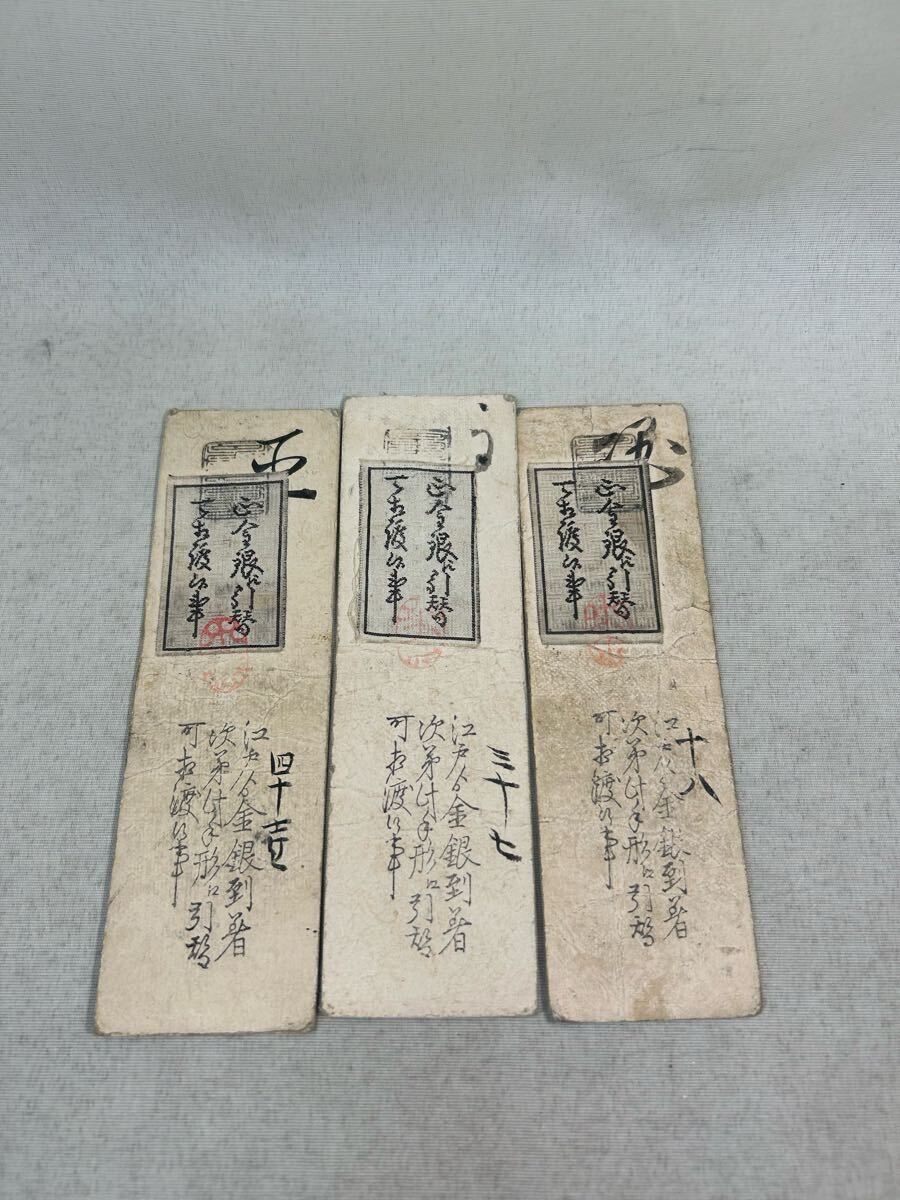 正金銀ニ引替
可相渡候事
四十壱
江戸ゟ金銀到着
次第此手形ニ引替
可相渡候事
正金銀ニ引替
可相渡候事
三十七
江戸ゟ金銀到着
次第此手形ニ引替
可相渡候事
正金銀ニ引替
可相渡候事
十八
江戸ゟ金銀到着
次第此手形ニ引替
可相渡候事